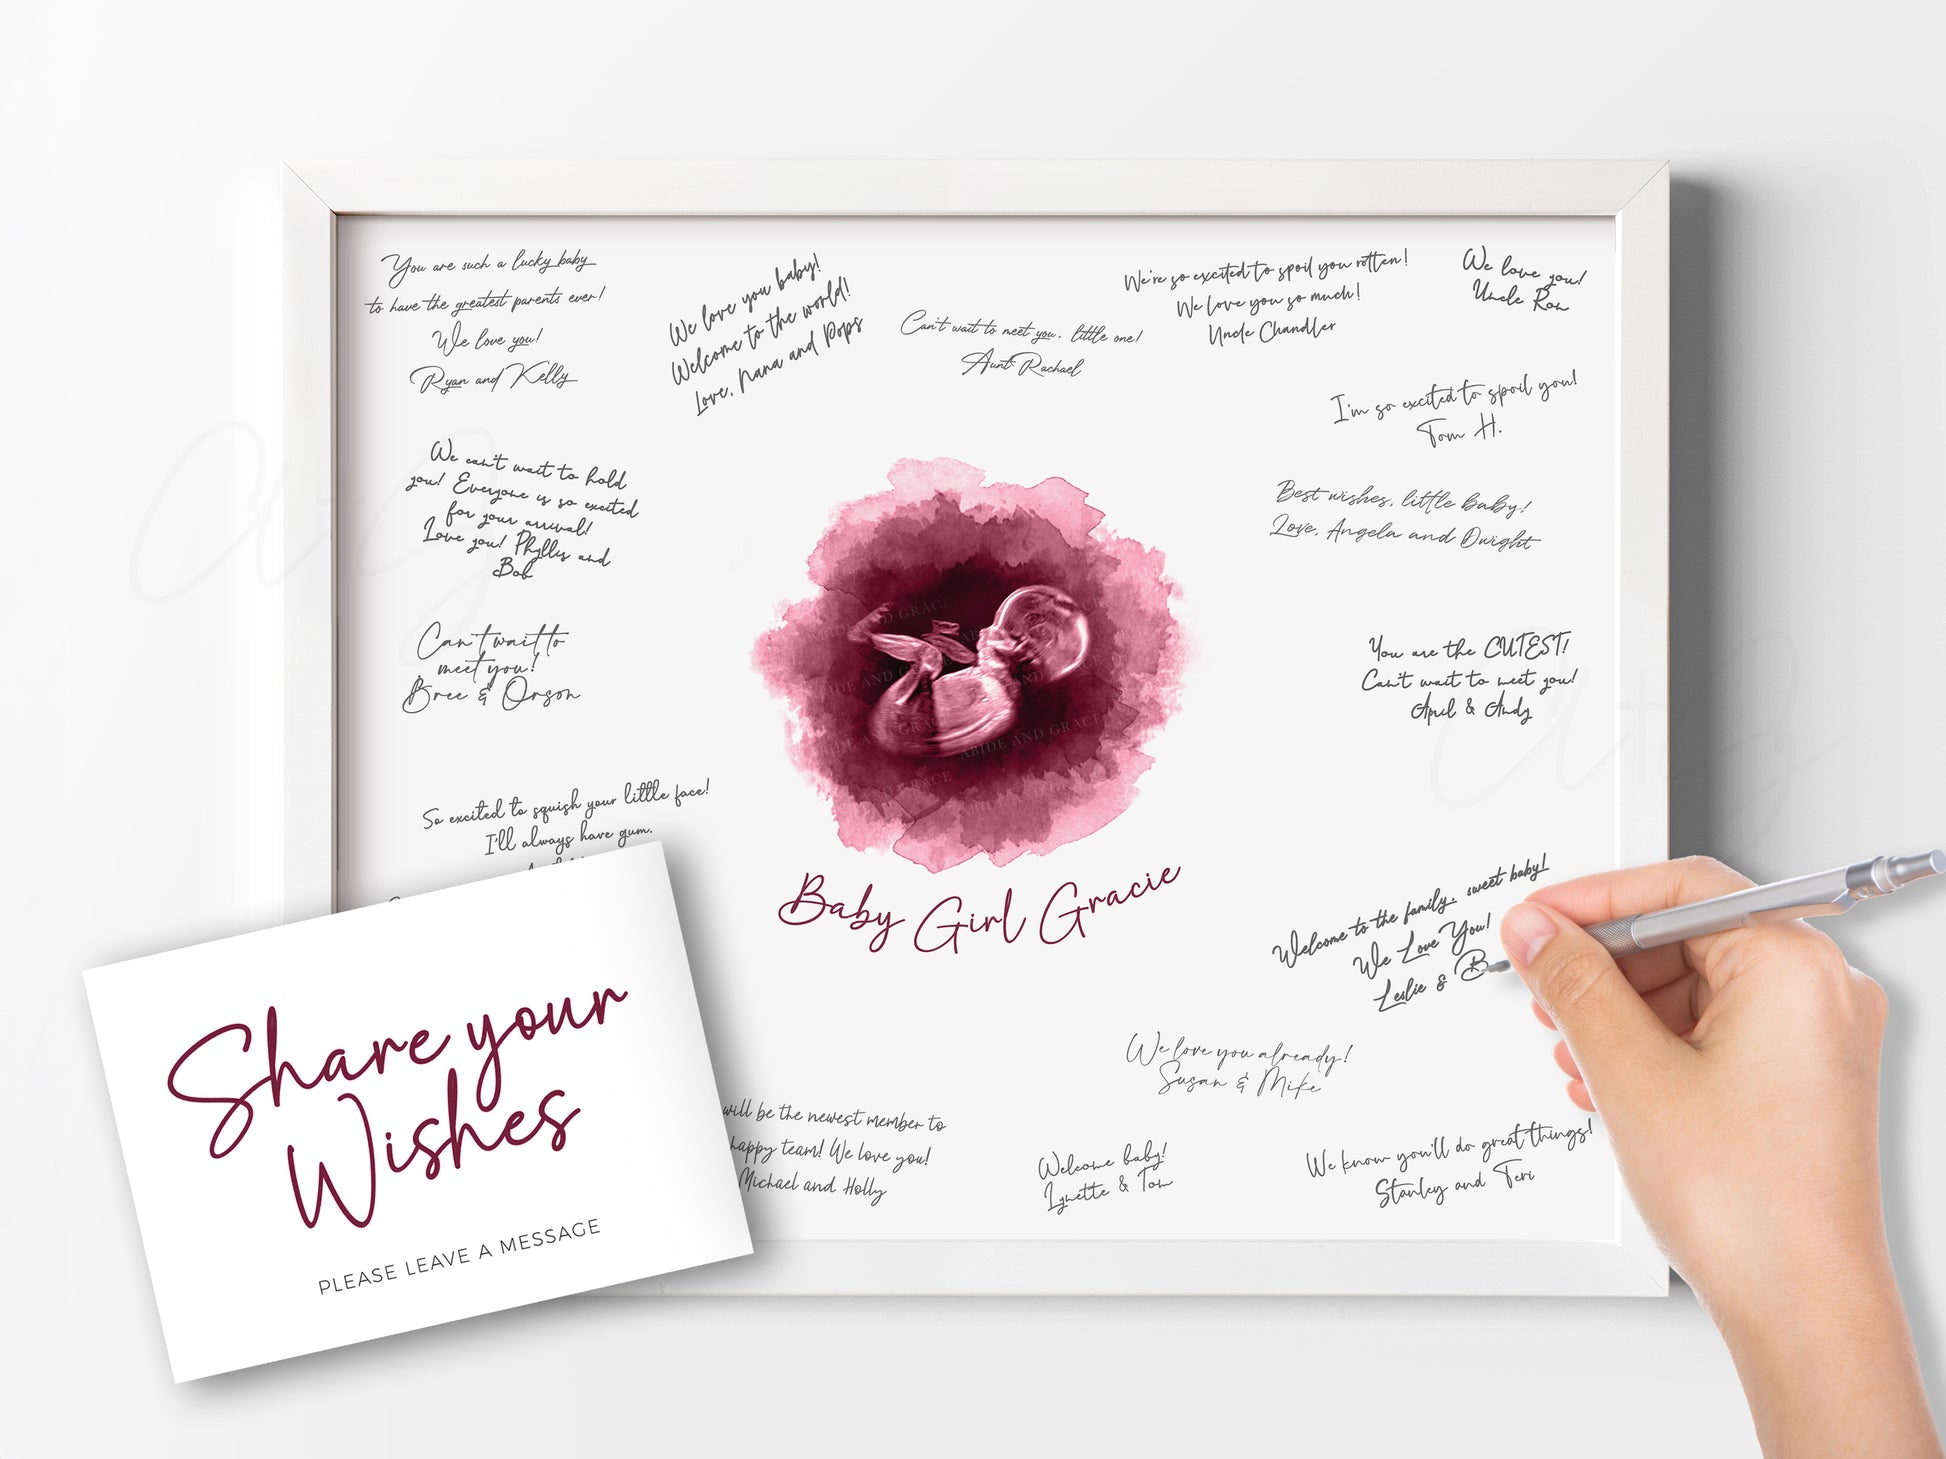 You are such a lucky baby
to have the greatest parents ever!
We love you!
Ryan and Kelly
We love you baby!
Welcome to the world!
Love, Nana and Pops
Can't wait to meet you, little one!
Aunt Rachael
We're so excited to spoil you rotten!
We love you so much!
Uncle Chandler
We love you!
Uncle Ron
I'm so excited to spoil you!
Tom H.
We can't wait to hold
you! Everyone is so excited
for your arrival!
Love you! Phyllis and
Bob
Best wishes, little baby!
Love, Angela and Dwight
Can't wait to
meet you!
Bree & Orson
You are the CUTEST!
Can't wait to meet you!
April & Andy
So excited to squish your little face!
I'll always have gum.
Baby Girl Gracie
Welcome to the family, sweet baby!
We Love You!
Leslie & B
We love you already!
Susan & Mike
will be the newest member to
happy team! We love you!
Michael and Holly
Welcome baby!
Lynette & Tom
We know you'll do great things!
Stanley and Teri
Share your
Wishes
PLEASE LEAVE A MESSAGE
ABIDE AND GRACE